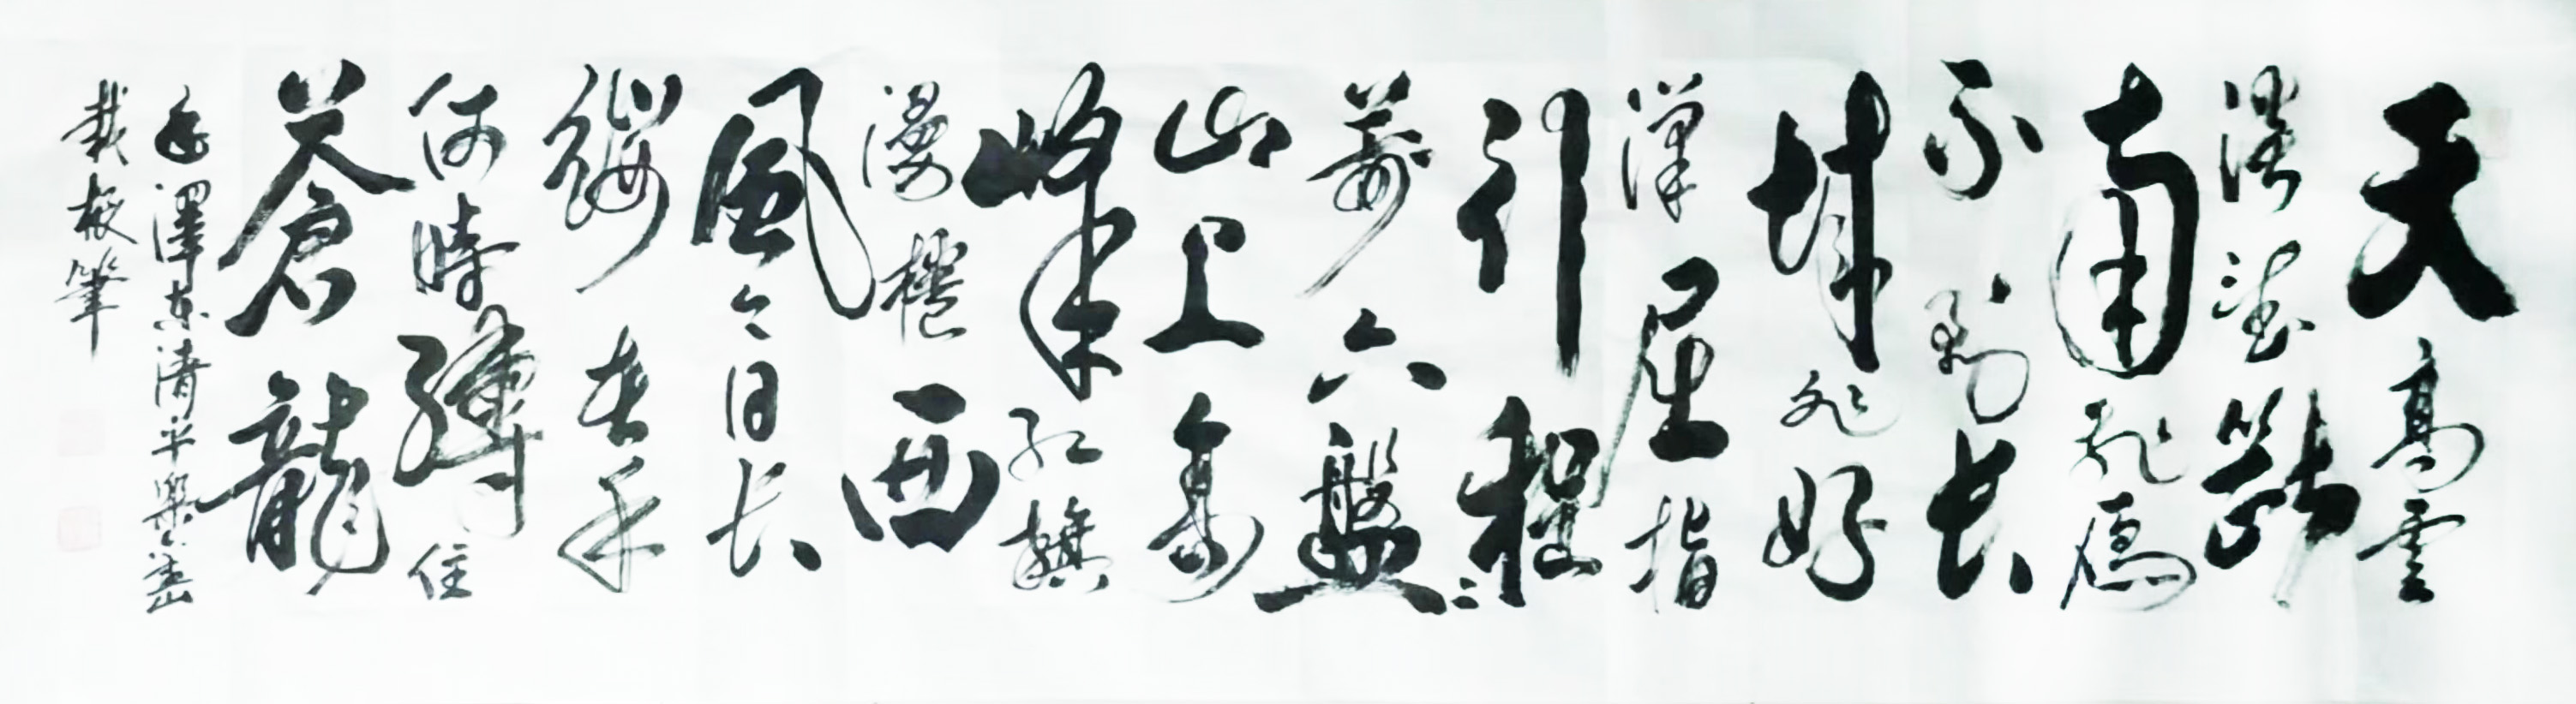 天高雲
淡望斷
南飛雁
不到長
城非好
漢屈指
行程二
萬六盤
山上高
峰紅旗
漫捲西
風今日长
纓在手
何時縛住
蒼龍
毛澤东清平樂六盤山
筆